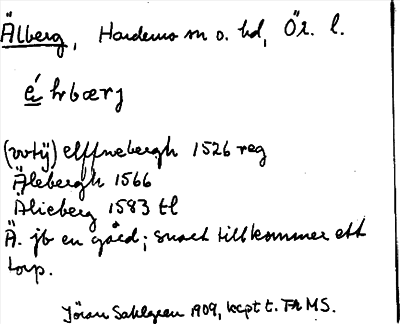 Älberg, Hardemo sn o. hd, Ör. l.
é hrbærj
(vvtij) elffnebergh 1526 reg
Älebergh 1566
Älieberg 1583 tl
Ä. jb en gård; snart tillkommer ett
torp.
Jöran Sahlgren 1909, kapt t. Fr MS.